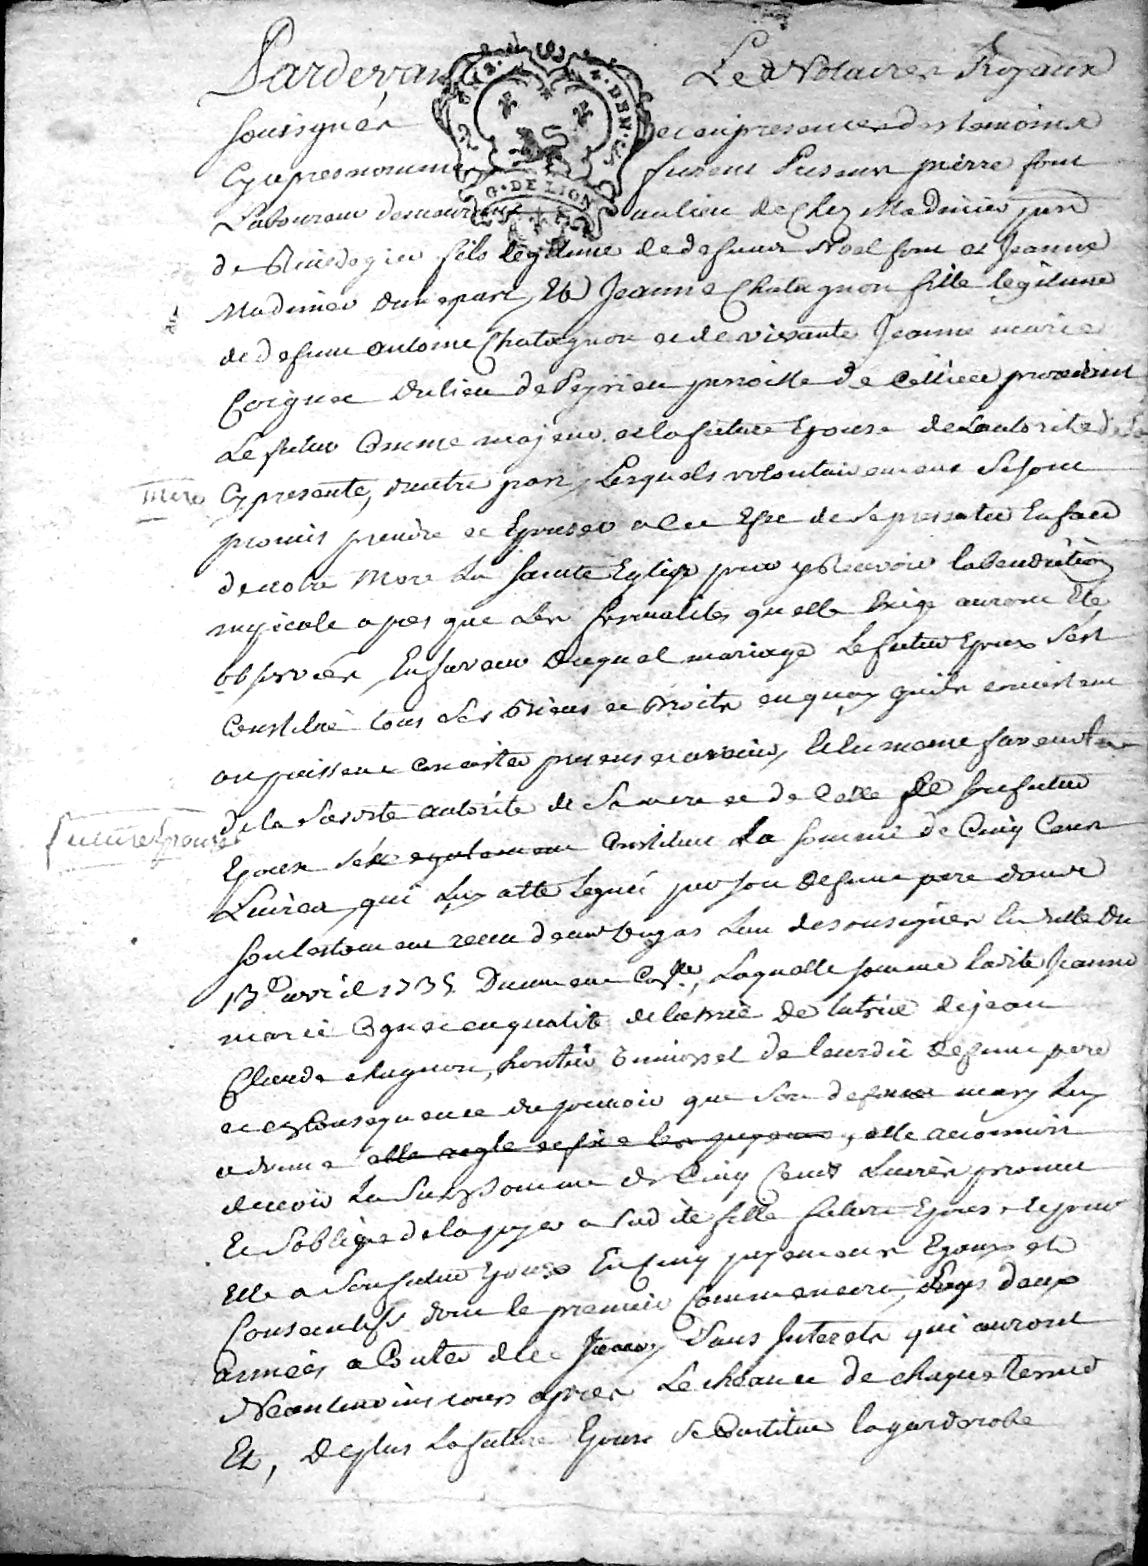 Pardevant Les Notaires Royaux
soussignés et en presence des temoins
Cy apres nommés furent presents pierre font
Laboureur demeurant au lieu de Chez Madinier
G. DE LION
2. DEN. LS
de fils legitime de defunt Noel font et Jeanne
Madinier d'une part, Et Jeanne Chatagnon fille legitime
de defunt antoine Chatagnon et de vivante Jeanne marie
Coignet du lieu de Peyrieu parroisse de Cellieu procedant
Le futur Comme majeur et la future Epouse de L'autorité de sa
mere Cy presente, d'autre part, Lesquels volontairement se sont
promis prendre et Epouser a cet Effet de se presenter En face
de notre Mere La Sainte Eglise pour y Recevoir la benediction
nuptiale apres que Les formalités qu'elle Exige auront Eté
observées, En faveur duquel mariage Le futur Epoux s'est
Constitué tous ses Biens et Droits en quoy qu'ils consistent
ou puissent consister presens et avenir, Et la meme faveur La
future Epouse
de la susdite autorité de sa mere et de Celle de son futur
Epoux s'est egalement Constitué La somme de Cinq Cent
Livres, qui Luy a été Leguée par son defunt pere dans
son testament receu dugas L'un des soussignés En datte du
13e avril 1735 Duement Coll.e, Laquelle somme ladite Jeanne
marie Cognet en qualité de de tutrice de jean
Claude chatagnon, heritier universel de leurdit defunt pere
et en Consequence du pouvoir que son defunt mary Luy
a donné elle regle et fixe les payemens, elle a commis
devoir La susd. somme de Cinq Cents Livres promet
Et s'oblige de la payer a sadite fille future Epouse et pour
Elle a son futur Epoux En Cinq payements Egaux et
Consecutifs dont le premier Commencera, dans deux
années a Conter de ce jourdhuy Sans Interets qui auront
Neantmoins cours apres L'echeance de chaque terme
Et, De plus La future Epouse se Constitue la garderobe